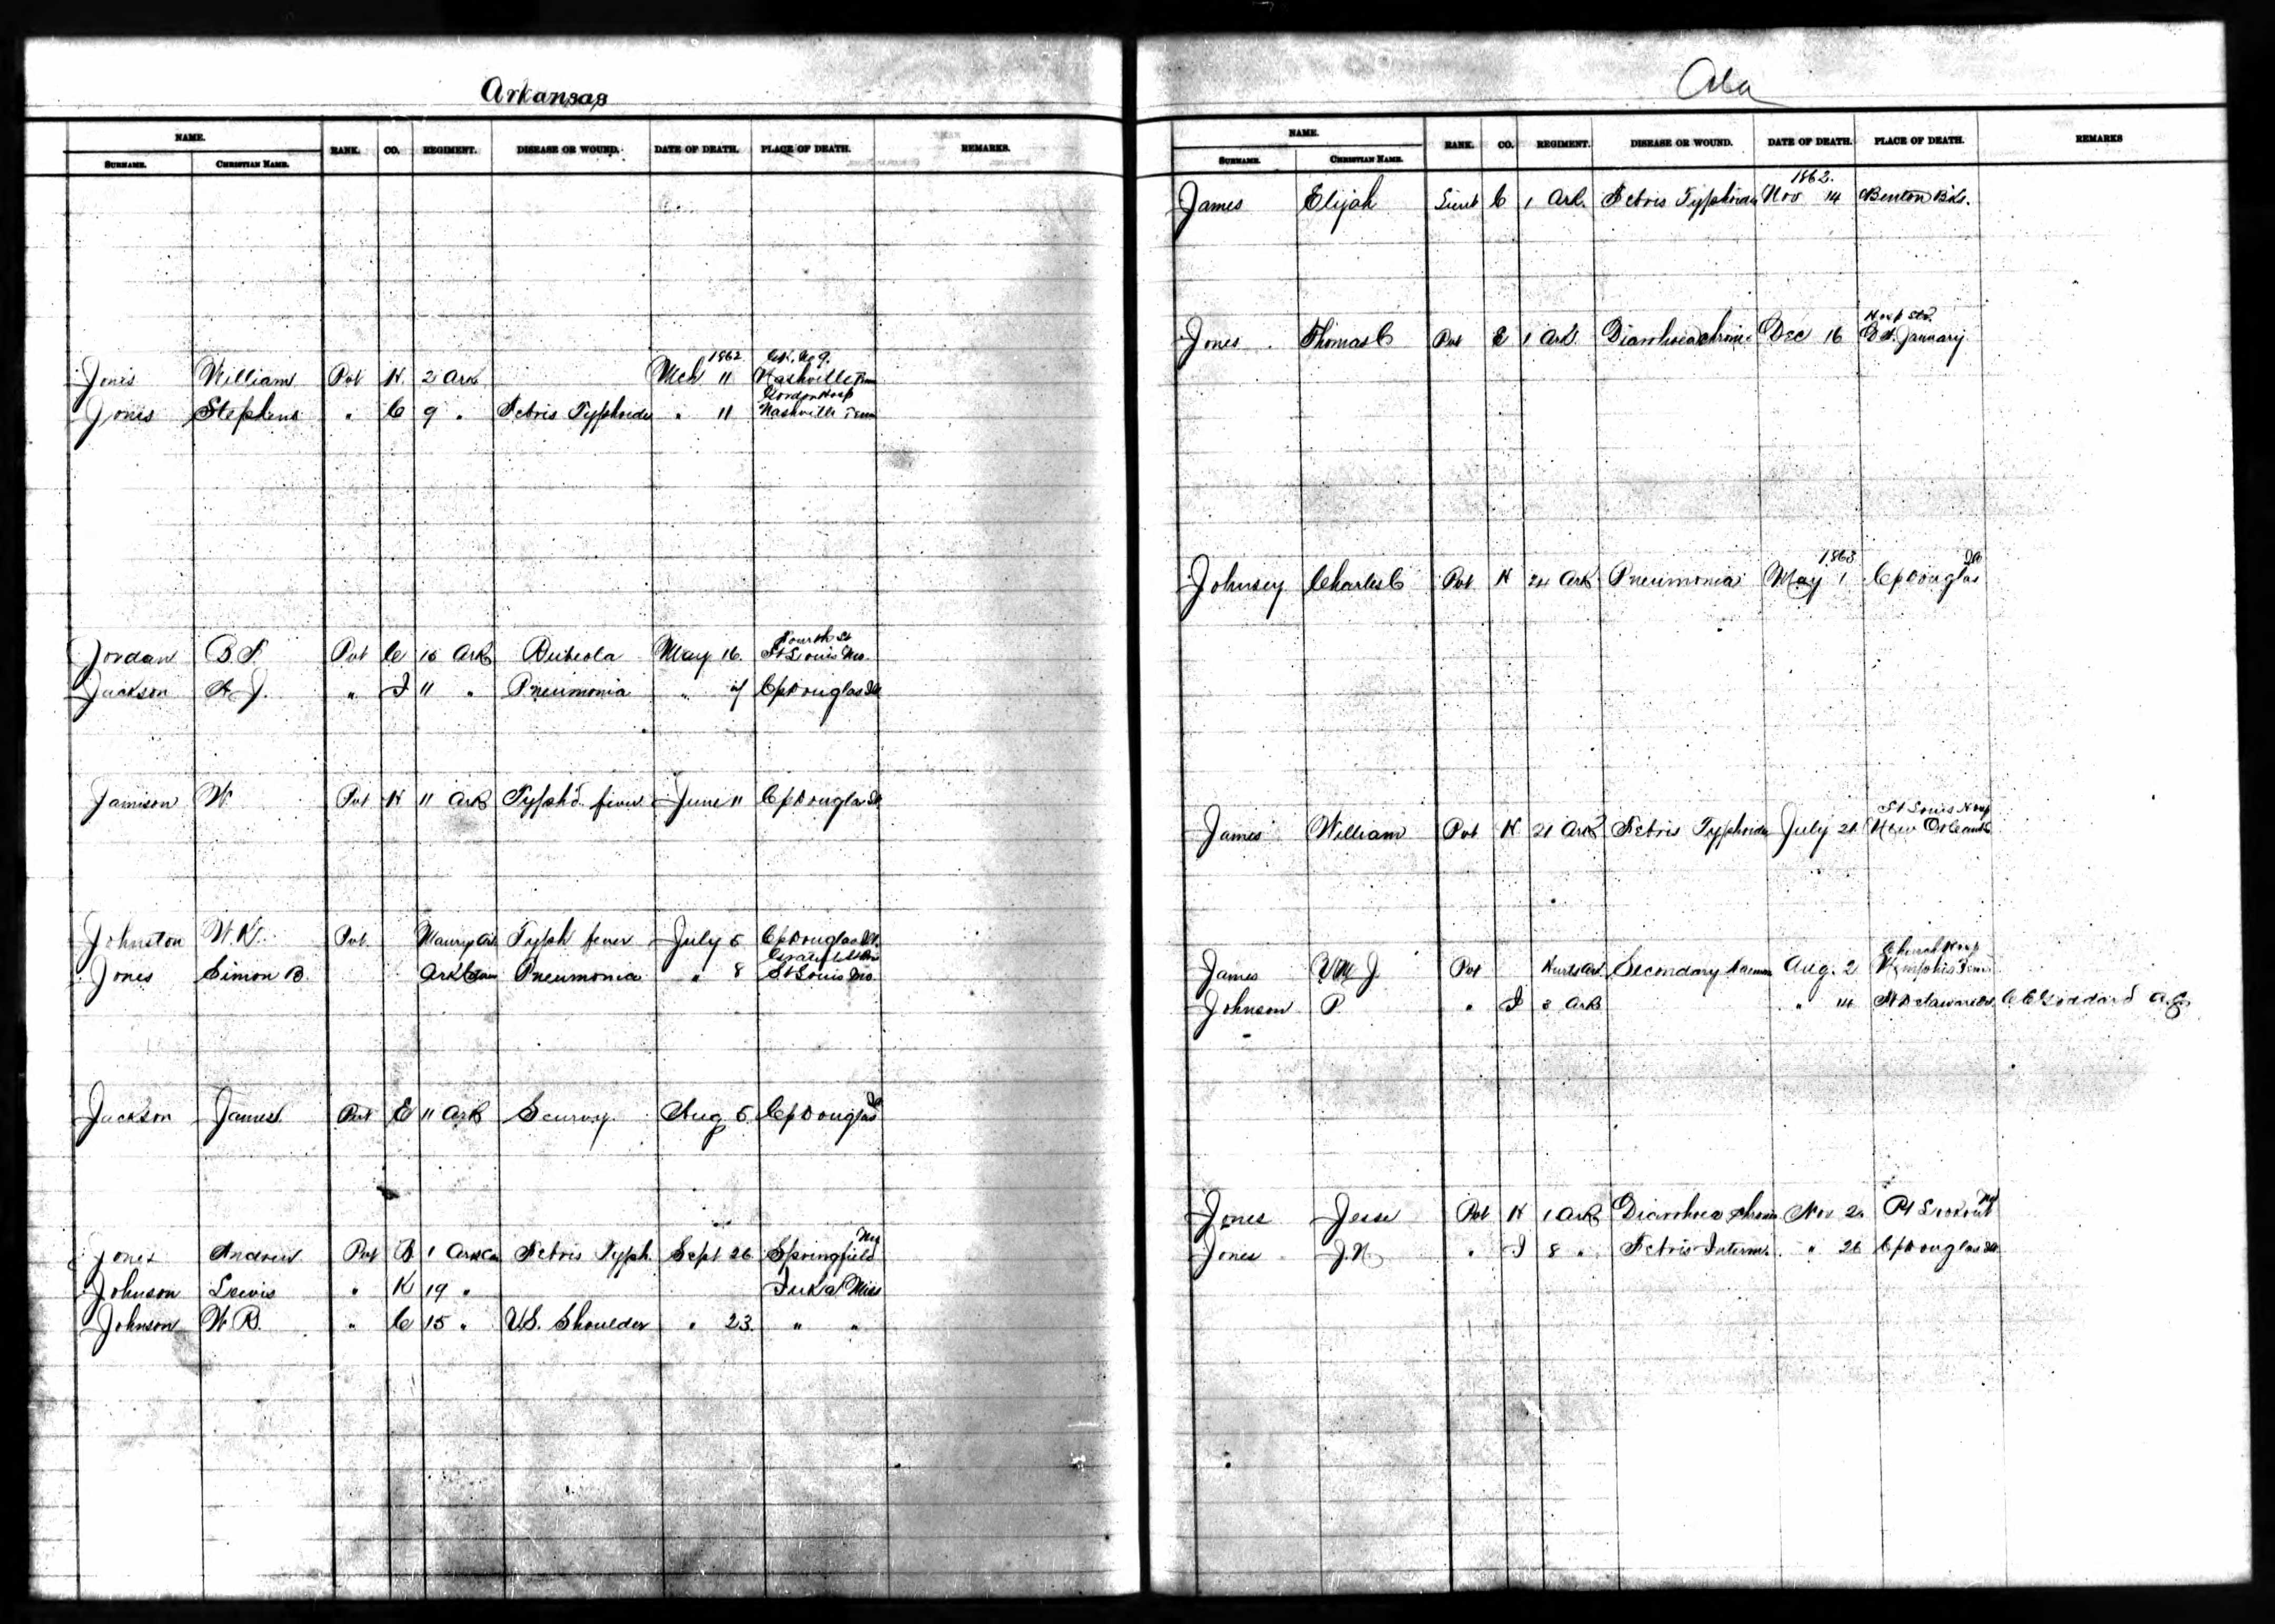 Arkansas
NAME. RANK. CO. REGIMENT. DISEASE OR WOUND. DATE OF DEATH. PLACE OF DEATH. REMARKS.
SURNAME. CHRISTIAN NAME.
1862
Jones William Pvt H 2 Ark Mch 11 Nashville Tenn
Gordon Hosp
Jones Stephens " C 9 " Febris Typhoides " 11 Nashville Tenn
Fourth St
Jordan B.F. Pvt C 16 Ark Rubeola May 16. St Louis Mo.
Jackson A.J. " I 11 " Pneumonia " Cp Douglas Ill
Jamison W. Pvt H 11 Ark Typh'd. fever June 11 Cp Douglas Ill
Johnston W.K. Pvt. Maury Art Typh fever July 5 Cp Douglas Ill.
Jones Simon B. Ark Cav Pneumonia " 8 St Louis Mo.
Jackson James. Pvt E 11 Ark Scurvy. Aug 5. Cp Douglas Ill
Mo
Jones Andrew Pvt B 1 Ark Cav Febris Typh. Sept 26 Springfield
Johnson Lewis " K 19 " Iuka Miss
Johnson W.B. " C 15 " V.S. Shoulder " 23. " "
Ala
NAME. RANK. CO. REGIMENT. DISEASE OR WOUND. DATE OF DEATH. PLACE OF DEATH. REMARKS
SURNAME. CHRISTIAN NAME.
1862.
James Elijah Lieut C 1 Ark. Febris Typhoides Nov 14 Benton Bks.
Hosp Str.
Jones Thomas C Pvt E 1 Ark. Diarrhoea chronic Dec 16 D.A. January
1863 Ill
Johnsey Charles C Pvt H 24 Ark Pneumonia May 1 Cp Douglas
St Louis Hosp
James William Pvt H 21 Ark Febris Typhoides July 21 New Orleans
Church Hosp
James Wm J. Pvt Secondary Haem Aug. 2 Memphis Tenn
Johnson P. " I 3 Ark " 14 Ft Delaware C Goddard
Md
Jones Jesse Pvt H 1 Ark Diarrhoea chron Nov 2 Pt Lookout
Jones J.N. " I 8 " Febris Interm. " 26 Cp Douglas Ill